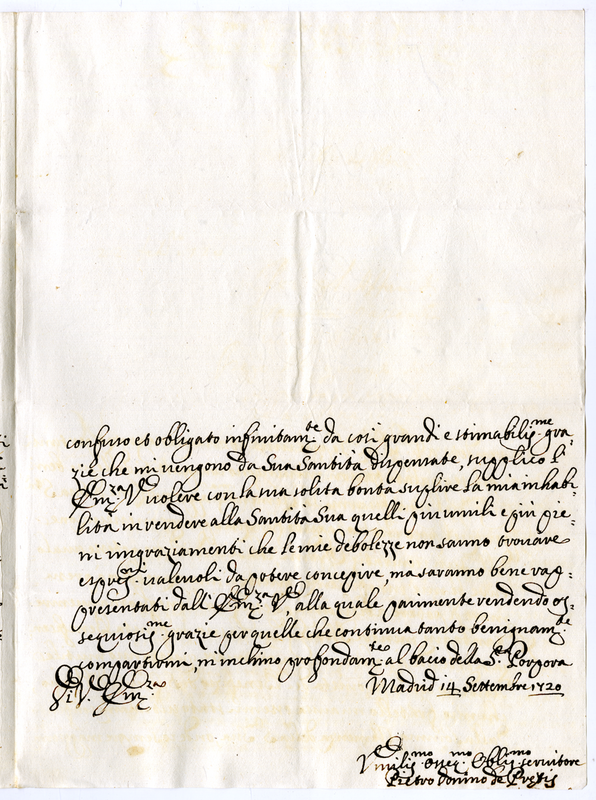 confuso et obligato infinitam.te da così grandi e stimabiliss.me gra=
zie che mi vengono da Sua Santità dispensate, supplico l'
Em.za V. volere con la sua solita bontà suplire la mia inhabi=
lità in rendere alla Santità Sua quelli più umili e più pie=
ni ringraziamenti che le mie debolezze non sanno trovare
espres.ni valevoli da potere concepire, ma saranno bene rap=
presentati dall' Em.za V., alla quale parimente rendendo os=
sequiosiss.me grazie per quelle che continua tanto benignam.te
compartirmi, m'inchino profondam.te al bacio della S. Porpora
Di V. Em.za Madrid 14 Settembre 1720
Umiliss.mo Osseq.mo Obblig.mo servitore
Pietro